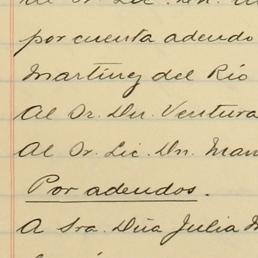 por cuenta adendo
Martínez del Río
Al Sr. Dn. Ventura
Al Sr. Lic. Dn. Man
Por adendos.
A Sra. Dña Julia M